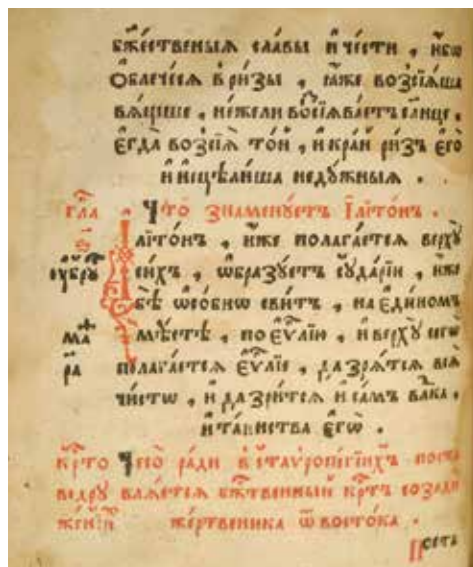 бж҃ественыѧ славы и҆ че́сти , и҆́бо
Ѻ҆блече́сѧ в̾ ри́зы , ꙗ҆́же возсїѧ́ша
вѧ́щше , не́жели во́сїѧваетъ сл҃нце ,
є҆гда̀ возсїѧ̀ то́й , и҆ кра́й ри́зъ є҆гѡ̀
и҆ и҆сцѣлѧ́ша неду́жныѧ .
гл҃а Что̀ знамену́етъ І҆лїто́нъ .
І҆лїто́нъ , и҆́же полага́етсѧ верхꙋ̀
си́хъ , ѡ҆бразꙋ́етъ сꙋда́рїй , и҆́же
бѣ̀ ѡ҆со́бнѡ сви́тъ , на є҆ди́номъ
мѣ́стѣ , по є҆ѵ҃лїю , и҆ верхꙋ̀ сегѡ̀
полага́етсѧ є҆ѵ҃лїе , да зрѧ́тсѧ всѧ̑
чи́стѡ , и҆ да зри́тсѧ и҆ са́мъ влⷣка ,
и҆ та̑инства є҆гѡ̀ .
Чесѡ̀ ра́ди в̾ ставропигі́ихъ
влѧ́етсѧ бж҃твенный кр҃тъ созадѝ
же́ртвеника ѿ восто́ка .